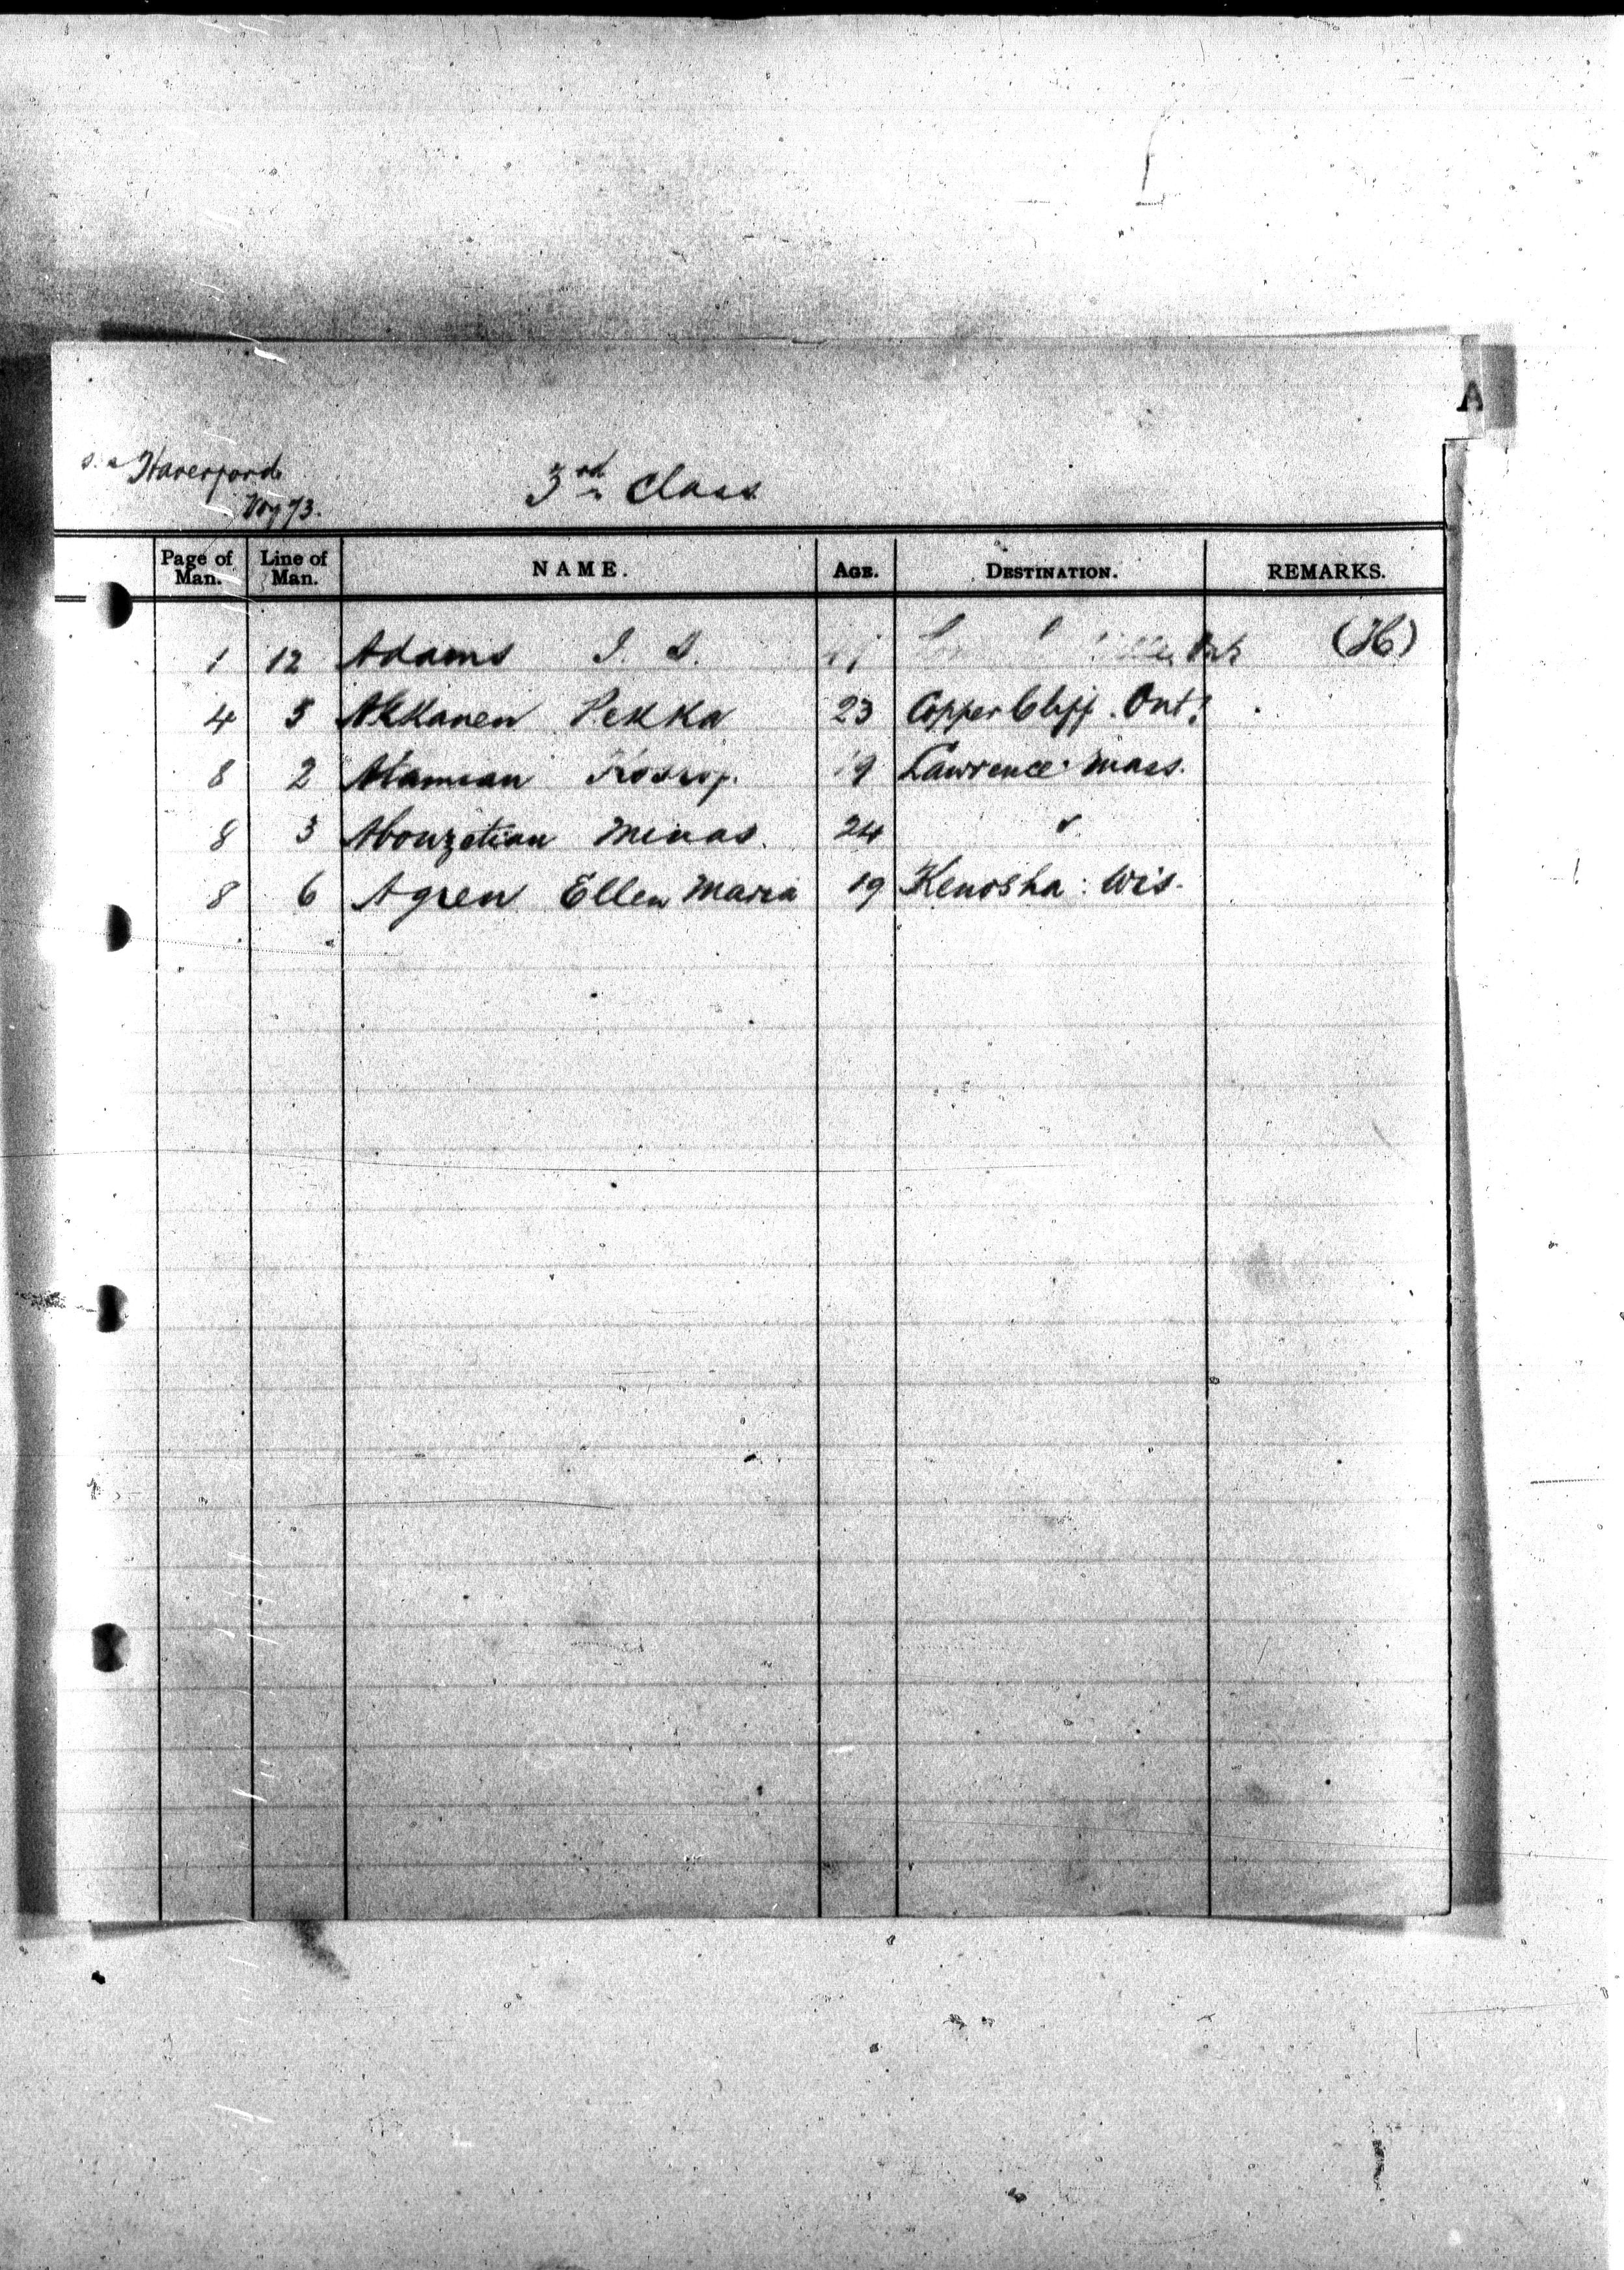 A
s.s. Haverford
Voy 73.
3rd Class
Page of Man. Line of Man. NAME. AGE. DESTINATION. REMARKS.
1 12 Adams I. S. (H)
4 5 Akkanen Pekka 23 Copper Cliff. Ont.
8 2 Atamian 19 Lawrence. Mass.
8 3 Abouzetian Minas. 24 "
8 6 Agren Ellen Maria 19 Kenosha: Wis.